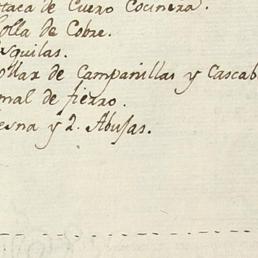 taca de Cuero Cocinera.
olla de Cobre.
squilas.
ollar de Campanillas y Cascab
mal de fierro.
esna y 2. Abujas.